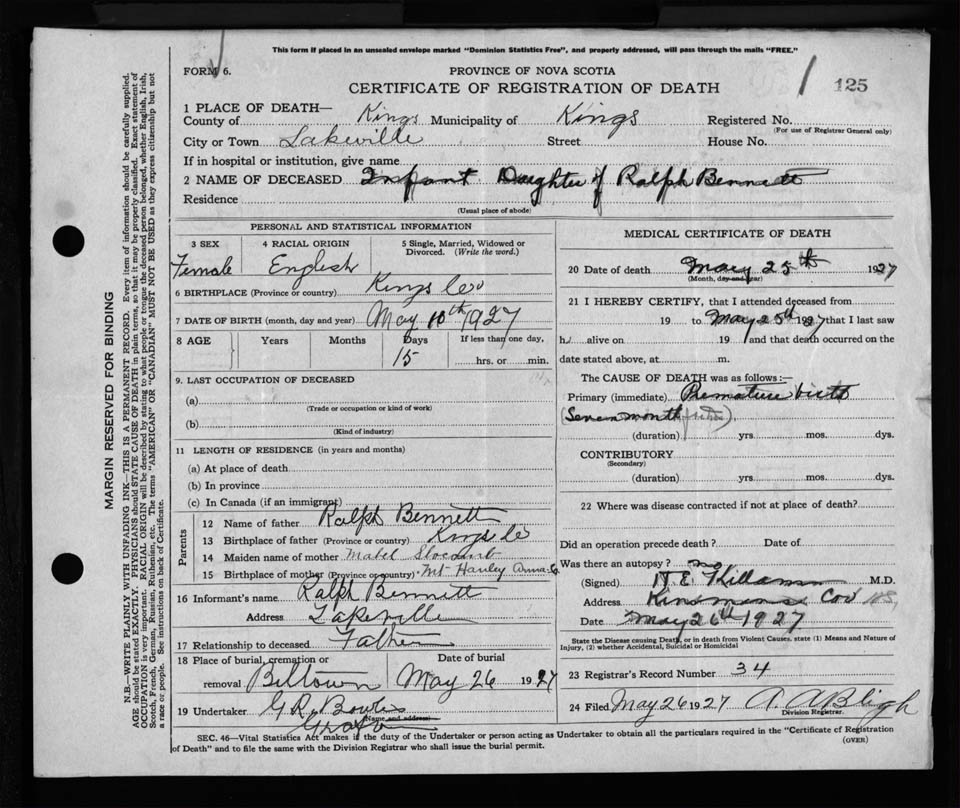 This form if placed in an unsealed envelope marked "Dominion Statistics Free", and properly addressed, will pass through the mails "FREE."
FORM 6.
PROVINCE OF NOVA SCOTIA
125
CERTIFICATE OF REGISTRATION OF DEATH
1 PLACE OF DEATH—
County of Kings Municipality of Kings Registered No.
(For use of Registrar General only)
City or Town Lakeville Street House No.
If in hospital or institution, give name
2 NAME OF DECEASED Infant Daughter of Ralph Bennett
Residence
(Usual place of abode)
PERSONAL AND STATISTICAL INFORMATION
3 SEX
Female
4 RACIAL ORIGIN
English
5 Single, Married, Widowed or Divorced. (Write the word.)
6 BIRTHPLACE (Province or country) Kings Co
7 DATE OF BIRTH (month, day and year) May 10th 1927
8 AGE Years Months Days If less than one day,
15 hrs. or min.
9. LAST OCCUPATION OF DECEASED
(a)
(Trade or occupation or kind of work)
(b)
(Kind of industry)
11 LENGTH OF RESIDENCE (in years and months)
(a) At place of death
(b) In province
(c) In Canada (if an immigrant)
Parents
12 Name of father Ralph Bennett
13 Birthplace of father (Province or country) Kings Co
14 Maiden name of mother Mabel Slocomb
15 Birthplace of mother (Province or country) Mt Hanley Anna. Co
16 Informant's name Ralph Bennett
Address Lakeville
17 Relationship to deceased Father
18 Place of burial, cremation or removal Billtown
Date of burial
May 26 1927
19 Undertaker G R Bowles
(Name and address)
MEDICAL CERTIFICATE OF DEATH
20 Date of death May 25th 1927
(Month, day and year)
21 I HEREBY CERTIFY, that I attended deceased from
19 to May 25th 1927 that I last saw
h alive on 19 and that death occurred on the
date stated above, at m.
The CAUSE OF DEATH was as follows:—
Primary (immediate) Premature birth
(Seven month
(duration) yrs. mos. dys.
CONTRIBUTORY
(Secondary)
(duration) yrs. mos. dys.
22 Where was disease contracted if not at place of death?
Did an operation precede death? Date of
Was there an autopsy? no
(Signed) Killam M.D.
Address
Date May 26th 1927
State the Disease causing Death, or in death from Violent Causes, state (1) Means and Nature of Injury, (2) whether Accidental, Suicidal or Homicidal
23 Registrar's Record Number 34
24 Filed May 26 1927 A. A Bligh
Division Registrar.
SEC. 46—Vital Statistics Act makes it the duty of the Undertaker or person acting as Undertaker to obtain all the particulars required in the "Certificate of Registration
of Death" and to file the same with the Division Registrar who shall issue the burial permit.
(OVER)
MARGIN RESERVED FOR BINDING
N.B.—WRITE PLAINLY WITH UNFADING INK—THIS IS A PERMANENT RECORD. Every item of information should be carefully supplied.
AGE should be stated EXACTLY. PHYSICIANS should STATE CAUSE OF DEATH in plain terms, so that it may be properly classified. Exact statement of
OCCUPATION is very important. RACIAL ORIGIN will be described by stating to what people or tongue the deceased person belonged, whether English, Irish,
Scotch, French, German, Russian, Ruthenian, etc. The terms "AMERICAN" OR "CANADIAN" MUST NOT BE USED as they express citizenship but not
a race or people. See instructions on back of Certificate.